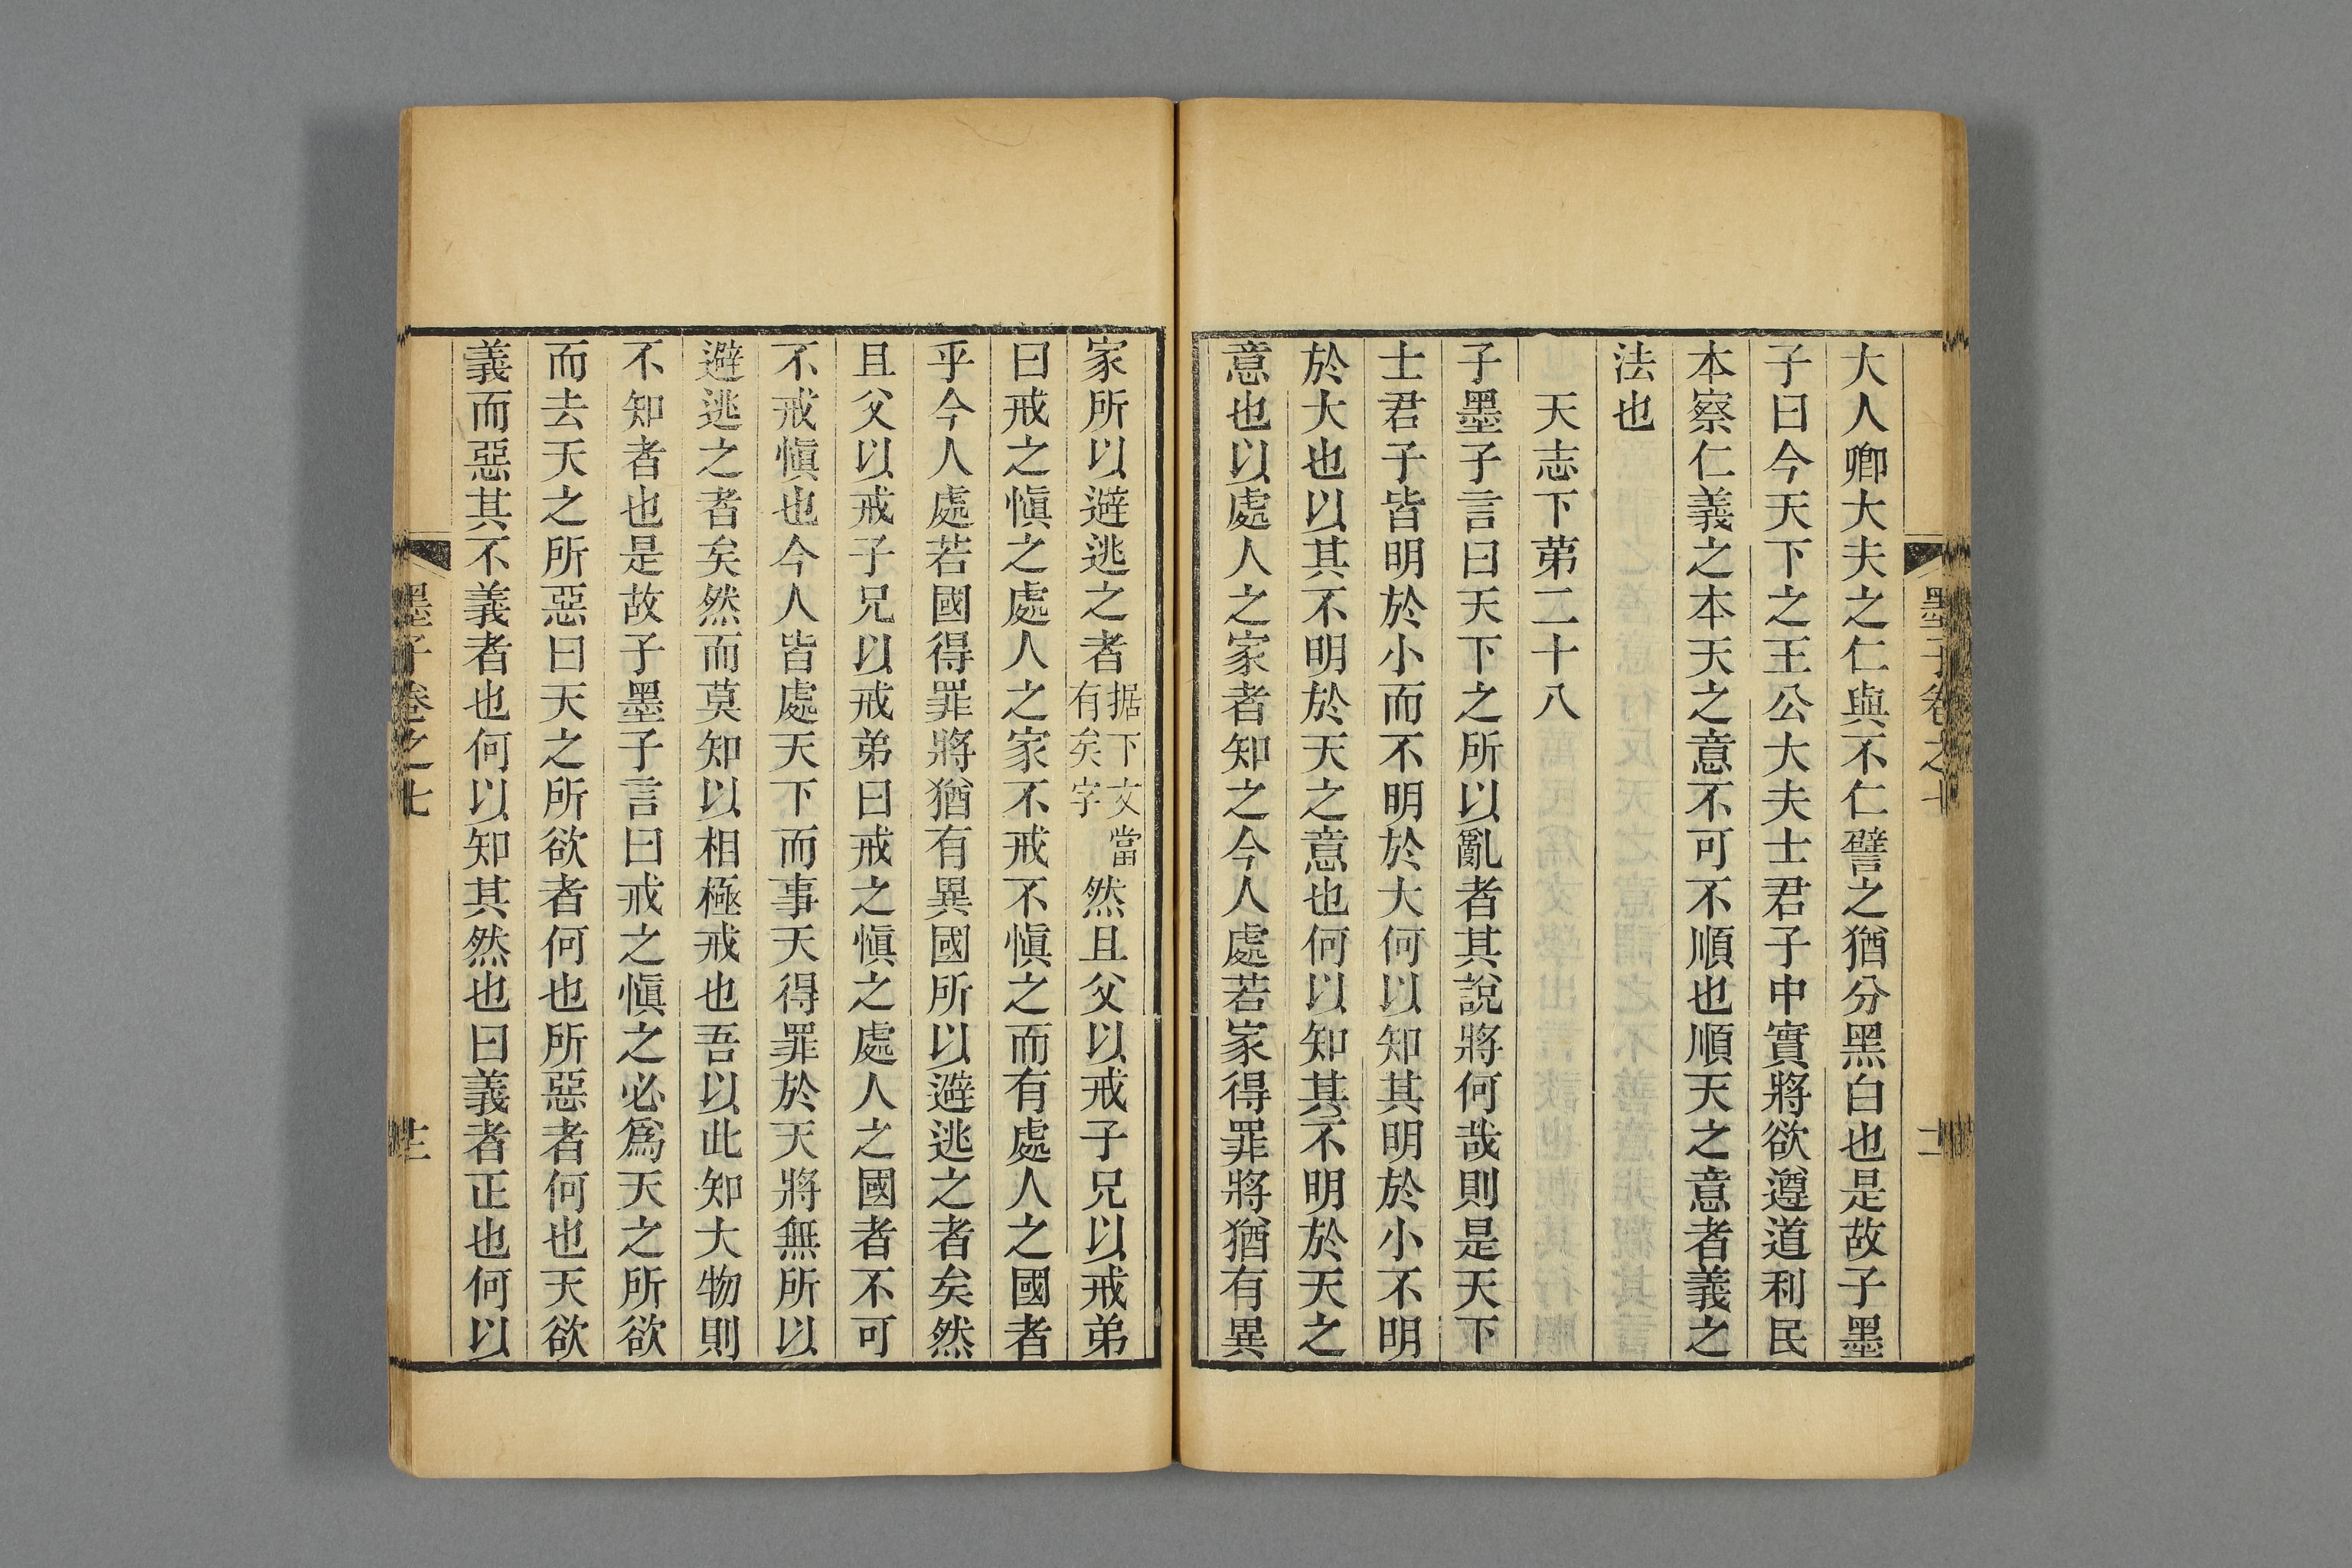 大人卿大夫之仁與不仁譬之猶分黑白也是故子墨
子曰今天下之王公大夫士君子中實將欲遵道利民
本察仁義之本天之意不可不順也順天之意者義之
法也
天志下苐二十八
子墨子言曰天下之所以亂者其說將何哉則是天下
士君子皆明於小而不明於大何以知其明於小不明
於大也以其不明於天之意也何以知其不明於天之
意也以處人之家者知之今人處若家得罪將猶有異
家所以避逃之者据下文當有矣字然且父以戒子兄以戒弟
曰戒之愼之處人之家不戒不愼之而有處人之國者
乎今人處若國得罪將猶有異國所以避逃之者矣然
且父以戒子兄以戒弟曰戒之愼之處人之國者不可
不戒愼也今人皆處天下而事天得罪於天將無所以
避逃之者矣然而莫知以相極戒也吾以此知大物則
不知者也是故子墨子言曰戒之愼之必爲天之所欲
而去天之所惡曰天之所欲者何也所惡者何也天欲
義而惡其不義者也何以知其然也曰義者正也何以
墨子卷之七